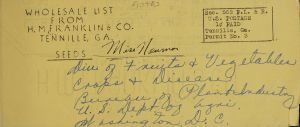 WHOLESALE LIST
FROM
H.M.FRANKLIN & CO.
TENNILLE, GA.
SEEDS
Sec. 562 P.L.& R.
U.S. POSTAGE
1¢ PAID
Tennille, Ga.
Permit No. 2
Miss
Div of Fruits & Vegetables
Crops & Disease
Bureau of Plant Industry
U.S. Dept of Agri.
Washington D.C.